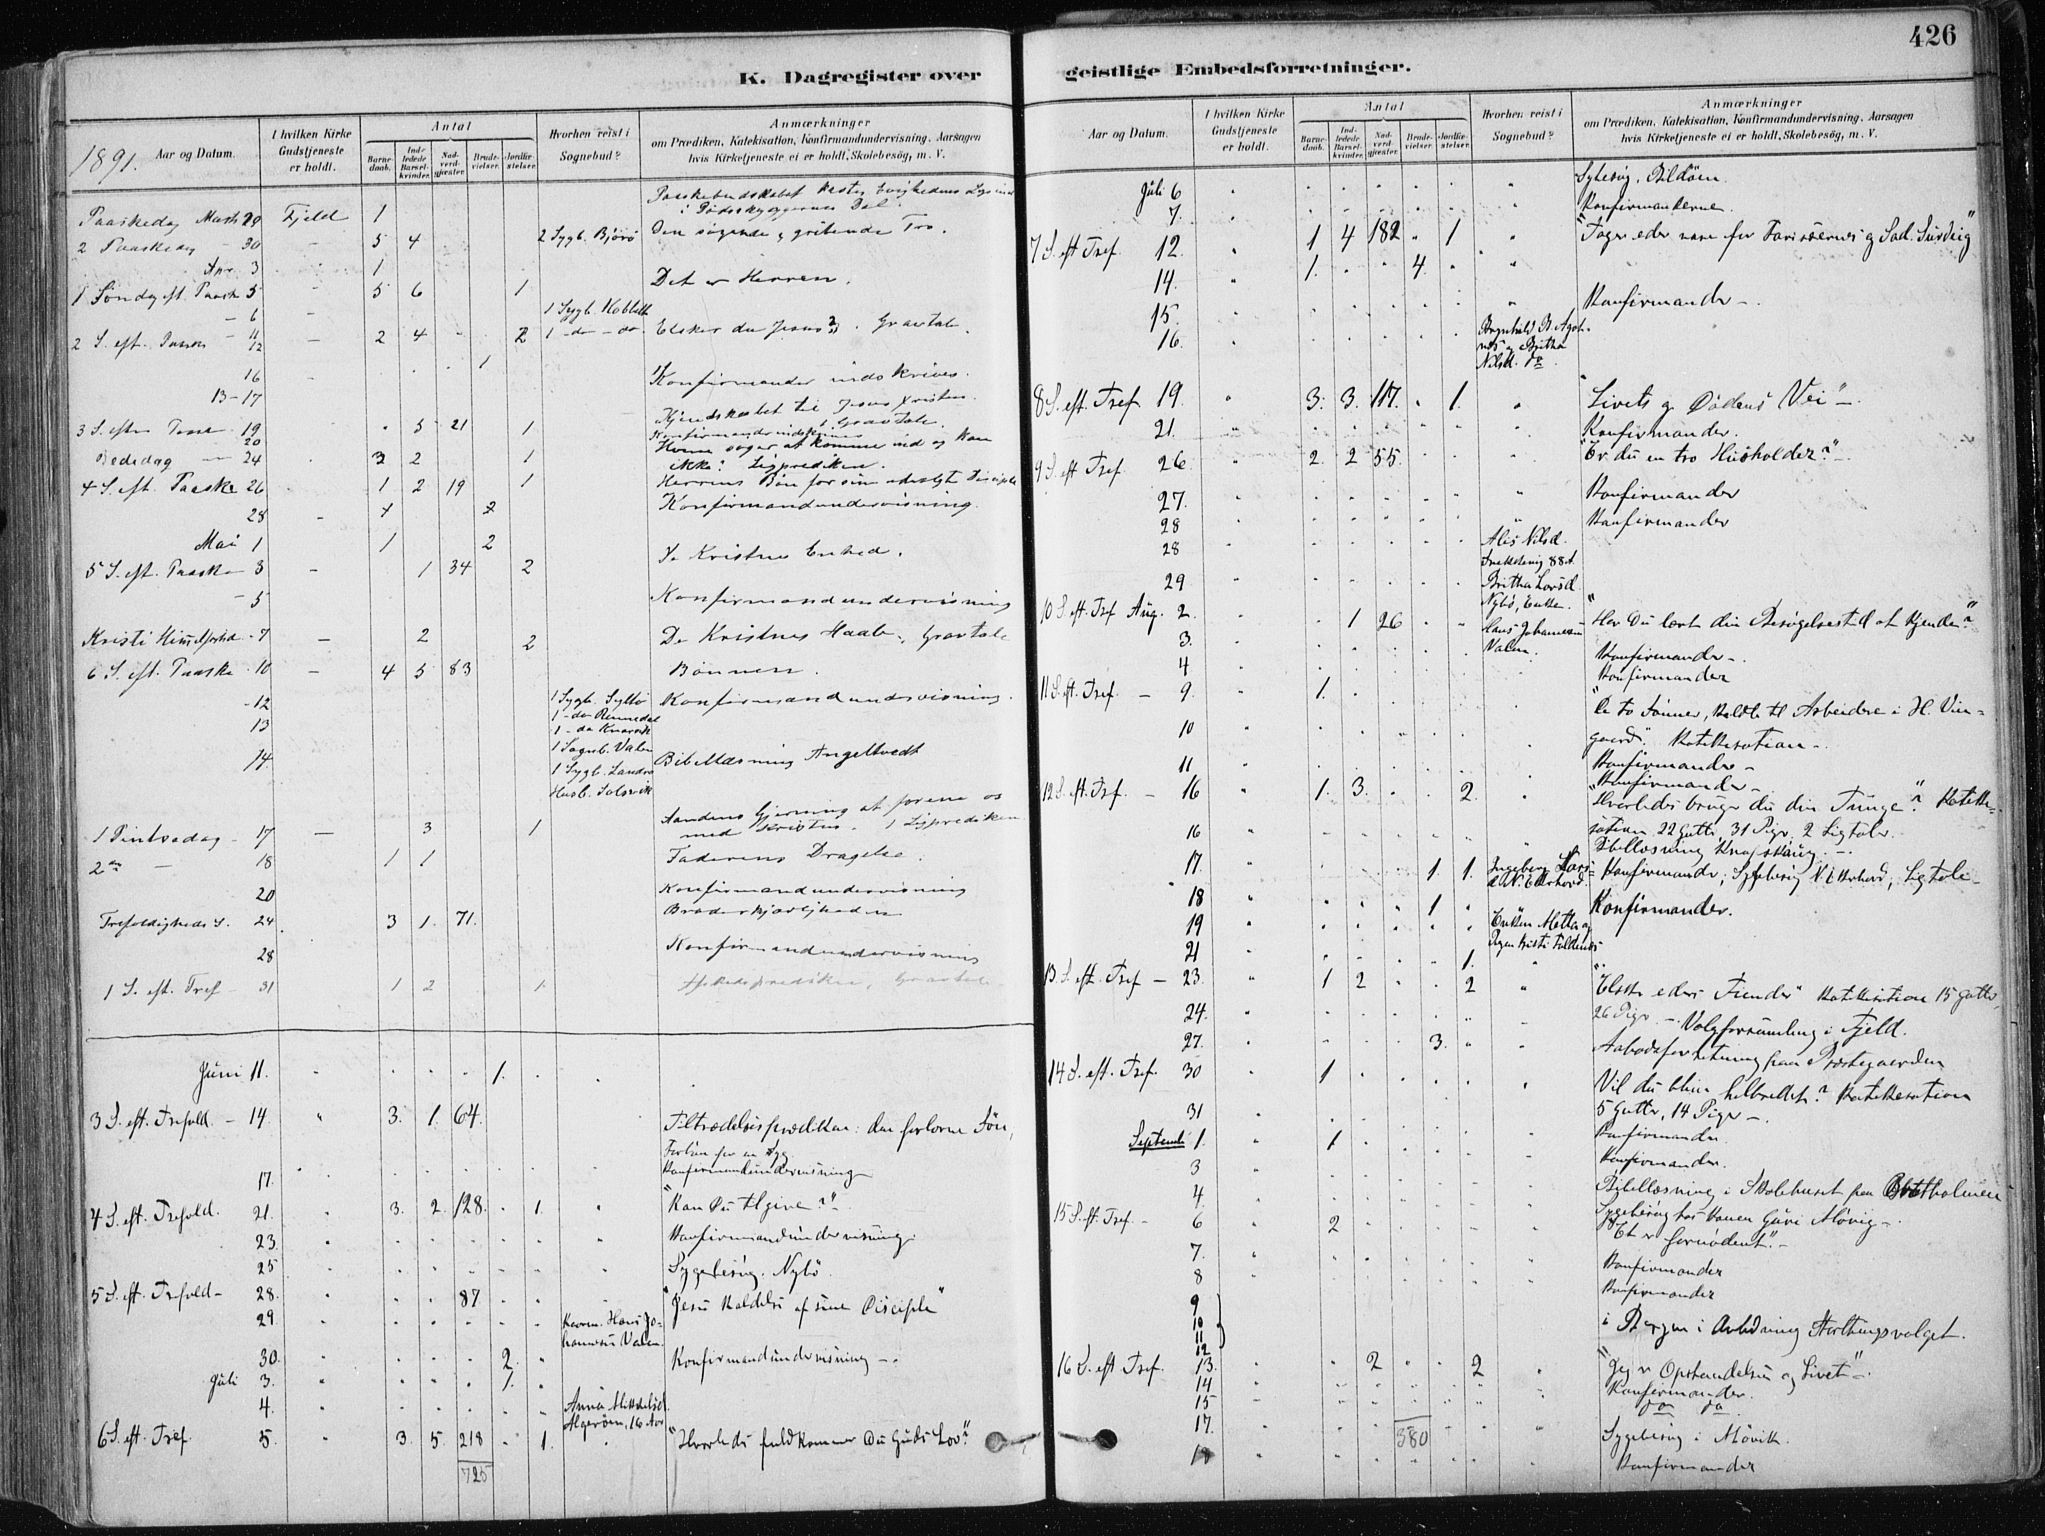 426
K. Dagregister over geistlige Embedsforretninger.
1891.
Aar og Datum.
I hvilken Kirke Gudstjeneste er holdt.
Antal
Barnedaab.
Indledede Barselkvinder.
Nadverdgjæster.
Brudevielser.
Jordfæstelser.
Hvorhen reist i Sognebud?
Anmærkninger
om Prædiken, Katekisation, Konfirmandundervisning, Aarsagen
hvis Kirketjeneste ei er holdt, Skolebesög, m. V.
Paaskedag Marts 29 Fjeld 1
2 Paaskedag - 30 - 5 4 2 Sygb. Bjorö Den søgende & gribende Tro.
Apr. 3 1
1 Søndag eft. Paaske 5 - 5 6 1 Det er Herren.
- 6 1 Sygb.
2 S. eft. Paaske - 11 12 - 2 4 2 1 - do - do. Elsker du Jesus? Gravtale.
16 1
13-17 Konfirmander indskrives.
3 S. efter Paaske 19 5 21 1 Kjendskabet til Jesus Kristus. 1 Gravtale.
20
Bededag - 24 3 2 1 Hvem søger at komme ind og kan ikke? Ligprædiken.
4 S. eft. Paaske 26 1 2 19 1 Herrens Bøn for sine Disciple
28 - 4 2 Konfirmandundervisning.
Mai 1 1 2
5 S. eft. Paaske 3 - 1 34 2 De Kristnes Enhed.
- 5 Konfirmandundervisning
Kristi Himmelfartsd. - 7 - 2 2 De Kristnes Haab. Gravtale
6 S. eft. Paaske - 10 - 4 5 83 Bønnen.
- 12 1 Sygb. Syltö Konfirmandundervisning.
13 1 - do Rennedal
1 - do Knarvik
14 1 Sognb. Valen Bibellæsning Angeltvedt
1 Sygb. Landro
Husb. Solsvik
1 Pintsedag - 17 - 3 1 Aandens Gjerning at forene os med Kristus. 1 Ligprædiken
2den - 18 1 1 Faderens Dragelse.
20 Konfirmandundervisning
Trefoldigheds S. 24 3 1 71. Broderkjærligheden
28 Konfirmandundervisning
1 S. eft. Tref - 31 1 2 1. Afskedsprædiken, Gravtale
Juni 11. 1.
3 S. eft. Trefold. - 14. 3. 1. 64. Tiltrædelsesprædiken: den forlorne Søn,
Forbøn for en Syg
17. Konfirmandundervisning
4 S. eft. Trefold. 21. 3. 2. 128. 1. "Kan Du tilgive?"
23. Konfirmandundervisning.
25 Sygebesøg. Nybö.
5 S. eft. Trefold - 28. 87. "Jesu Kaldelse af sine Disciple"
29. Hans Johannesen Valen.
30. 2. Konfirmandundervisning -.
Juli 3. 1.
4. Anna
Algerøen, 16 Aar
6 S. eft. Tref. 5. 3. 5. 218 1. "Hvorledes fuldkommer Du Guds Lov?"
725
Aar og Datum.
I hvilken Kirke Gudstjeneste er holdt.
Antal
Barnedaab.
Indledede Barselkvinder.
Nadverdgjæster.
Brudevielser.
Jordfæstelser.
Hvorhen reist i Sognebud?
Anmærkninger
om Prædiken, Katekisation, Konfirmandundervisning, Aarsagen
hvis Kirketjeneste ei er holdt, Skolebesög, m. V.
Juli 6 Sygebesøg, Bildøen.
7. Konfirmanderne.
7 S. eft Tref. 12. 1 4 182 1 "Tager eder vare for Farisæernes og Sad. Surdeig"
14. 1. 4.
15. Konfirmander -.
16. Britha Nilsd. do
8 S. eft. Tref. 19. 3. 3. 117. 1. "Livets og Dødens Vei" -.
21. Konfirmander.
9 S. eft Tref. 26. 2. 2 55. "Er du en tro Husholder?" -
27. Konfirmander
28 Konfirmander
28 Alis Nilsd.
88 A.
29 Britha Larsd. Nybö, Enken.
10 S. eft. Tref Aug. 2. 1 26 Hans Johannesen Valen. "Har Du lært din Besøgelsestid at kjende?"
3. Konfirmander -.
4 Konfirmander
11 S. eft. Tref. - 9. 1. "De to Sønner, kaldte til Arbeidere i H. Vin-
gaard". Katekisation -.
10 Konfirmander -
11 Konfirmander -
12 S. eft. Tref. - 16 1. 3. 2. "Hvorledes bruger du din Tunge"? Kateki-
sation 22 Gutter, 31 Piger, 2 Ligtaler.
16 Bibellæsning Knapskaug. -.
17. 1. 1. Ingeborg Konfirmander, Sygebesøg, Ligtale -
18 1 Konfirmander.
19 Enken Metha og
21 1.
13 S. eft. Tref - 23. 1 2 2 "Elsker eders Fiender" Katekisation 15 Gutter,
26 Piger. -
24. Valgforsamling i Fjeld.
27. 3. Aabodsforretning paa Præstegaarden
14 S. eft. Tref. 30 1 Vil du blive helbredet? Katekisation
5 Gutter, 14 Piger -.
31 Konfirmander.
September 1. 1 Konfirmander.
3 Bibellæsning i Skolehuset paa Brattholmen
4. Sygebesøg hos Konen Guri Møvig -.
15 S. eft. Tref. - 6 2 "Et er fornødent." -
7. Konfirmander
8 Konfirmander
9
10
11
12 i Bergen i Anledning Storthingsvalget.
16 S. eft Tref. 13. 2 2 "Jeg er Opstandelsen og Livet" -.
14 Konfirmander.
15 do do
17. Sygebesøg i Møvik
18 Konfirmander
380